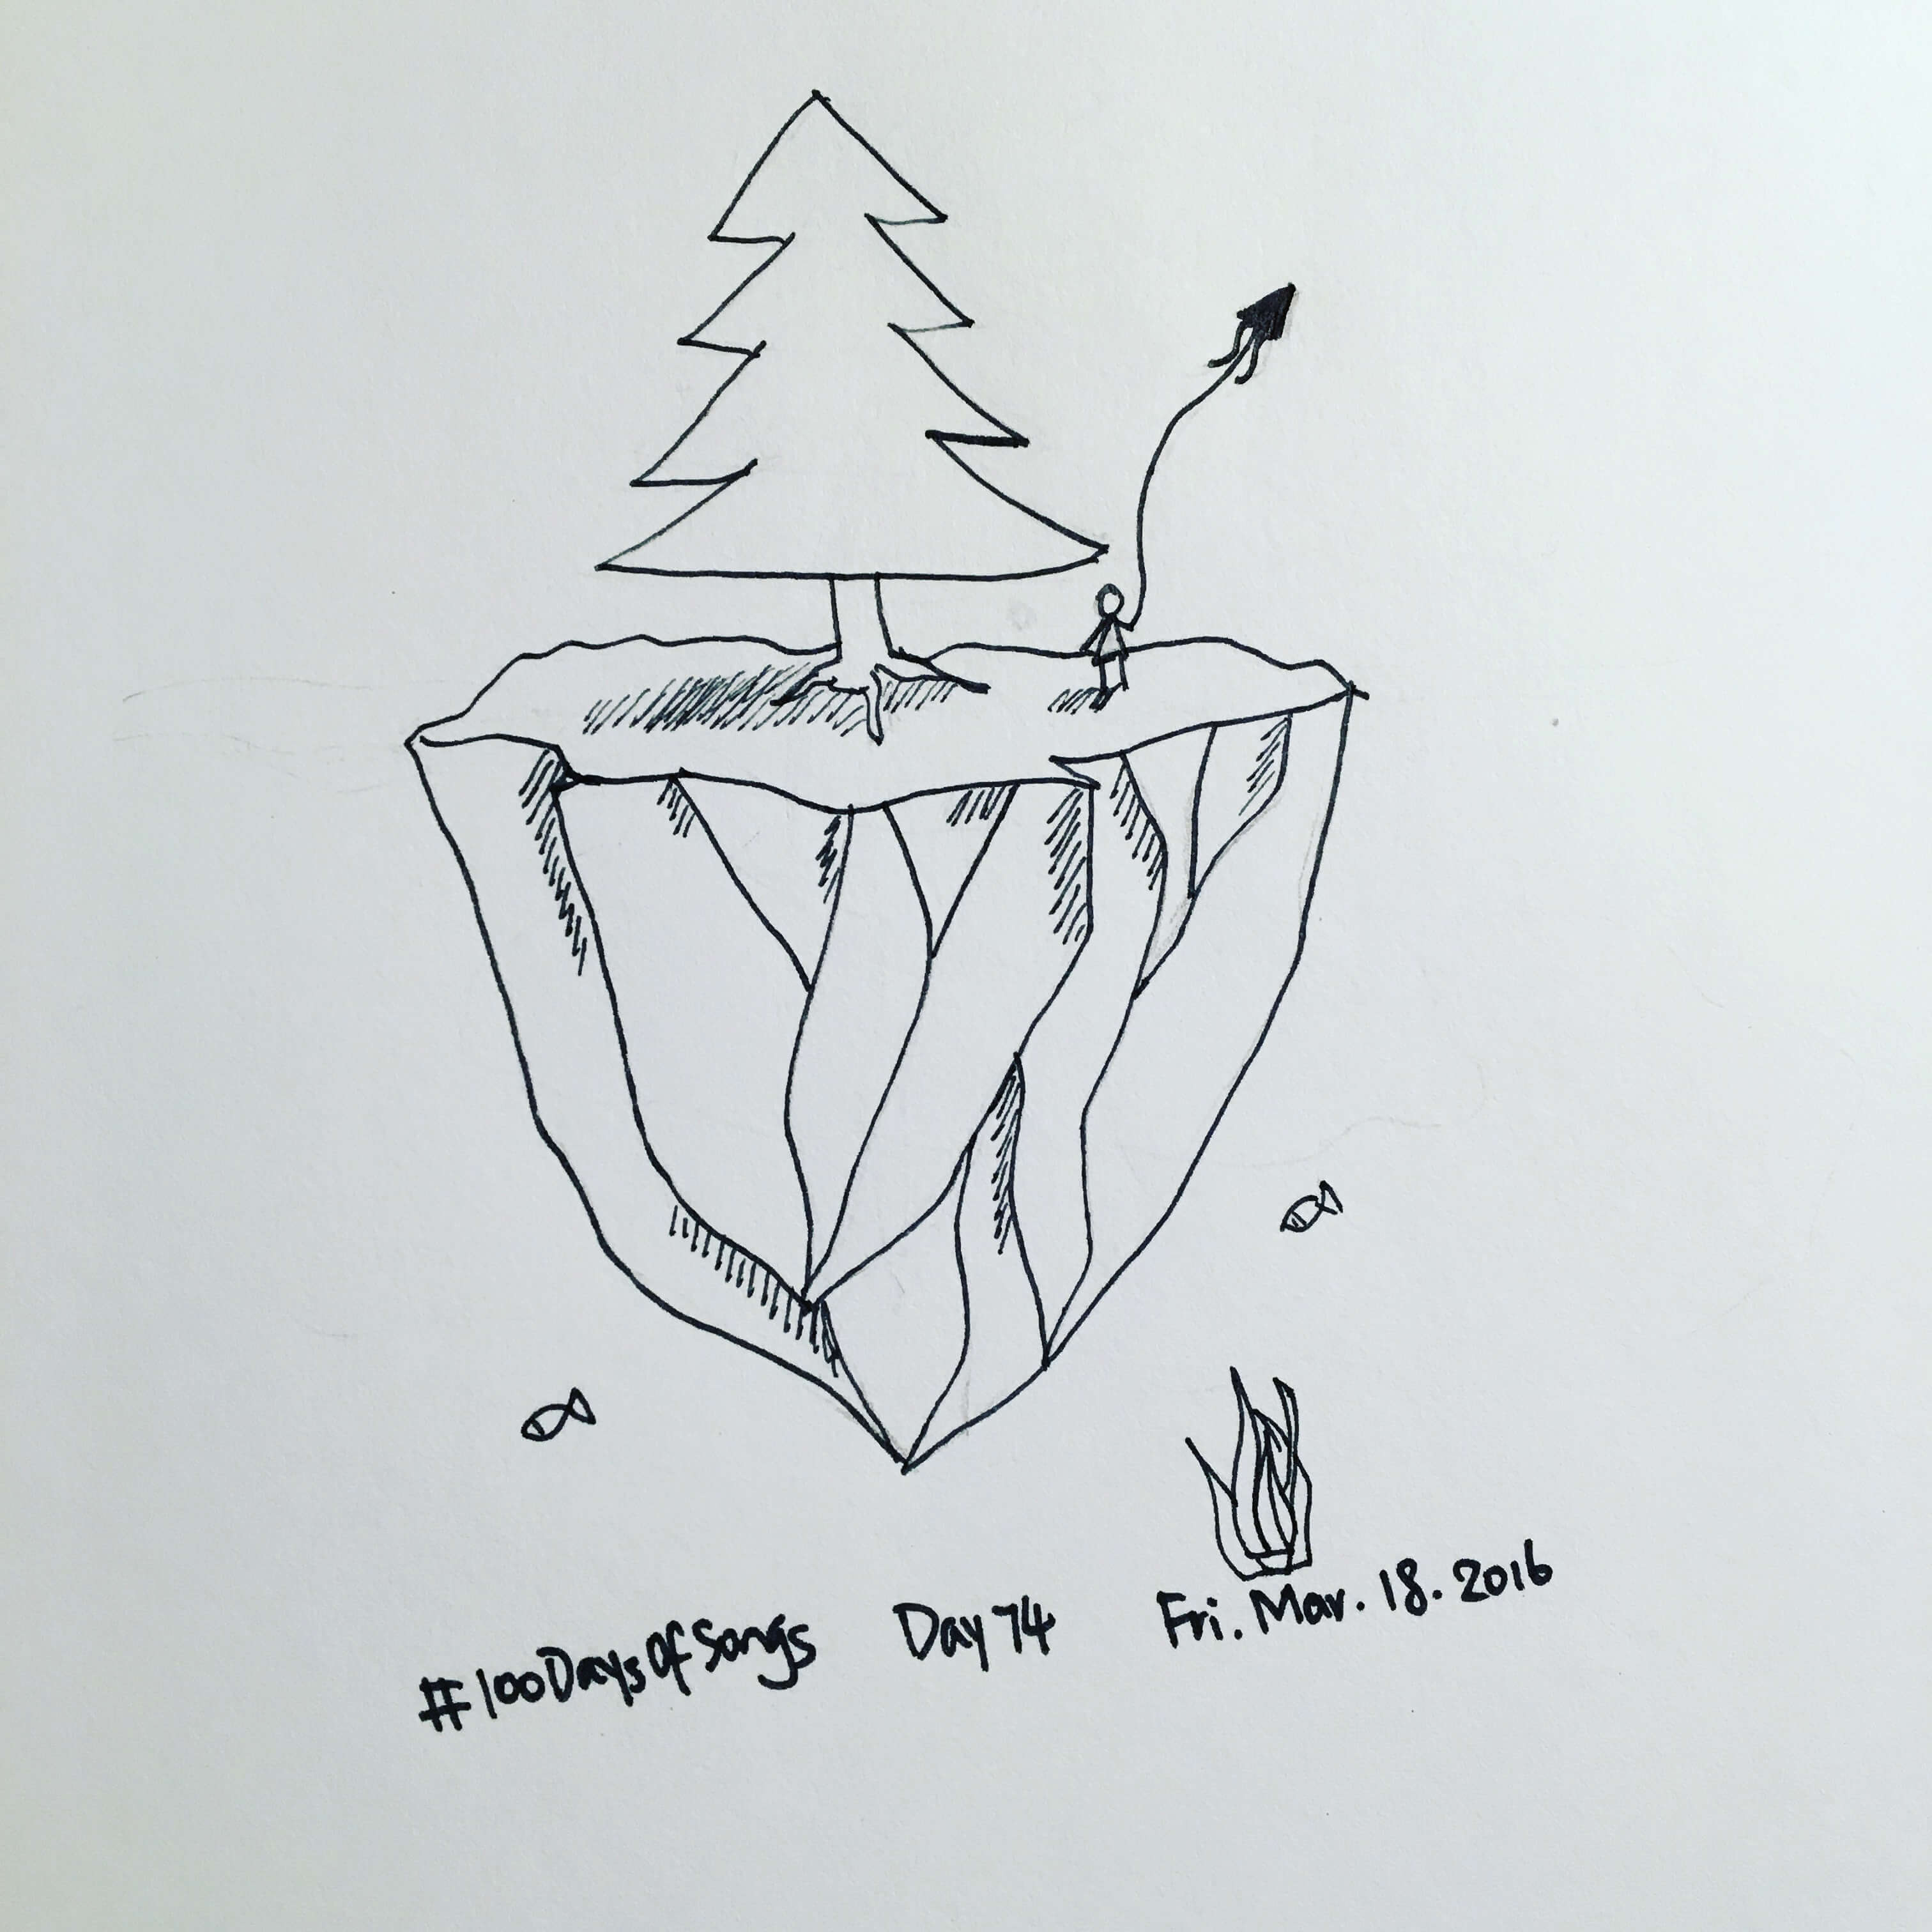 #100DaysOfSongs Day 74 Fri. Mar. 18. 2016